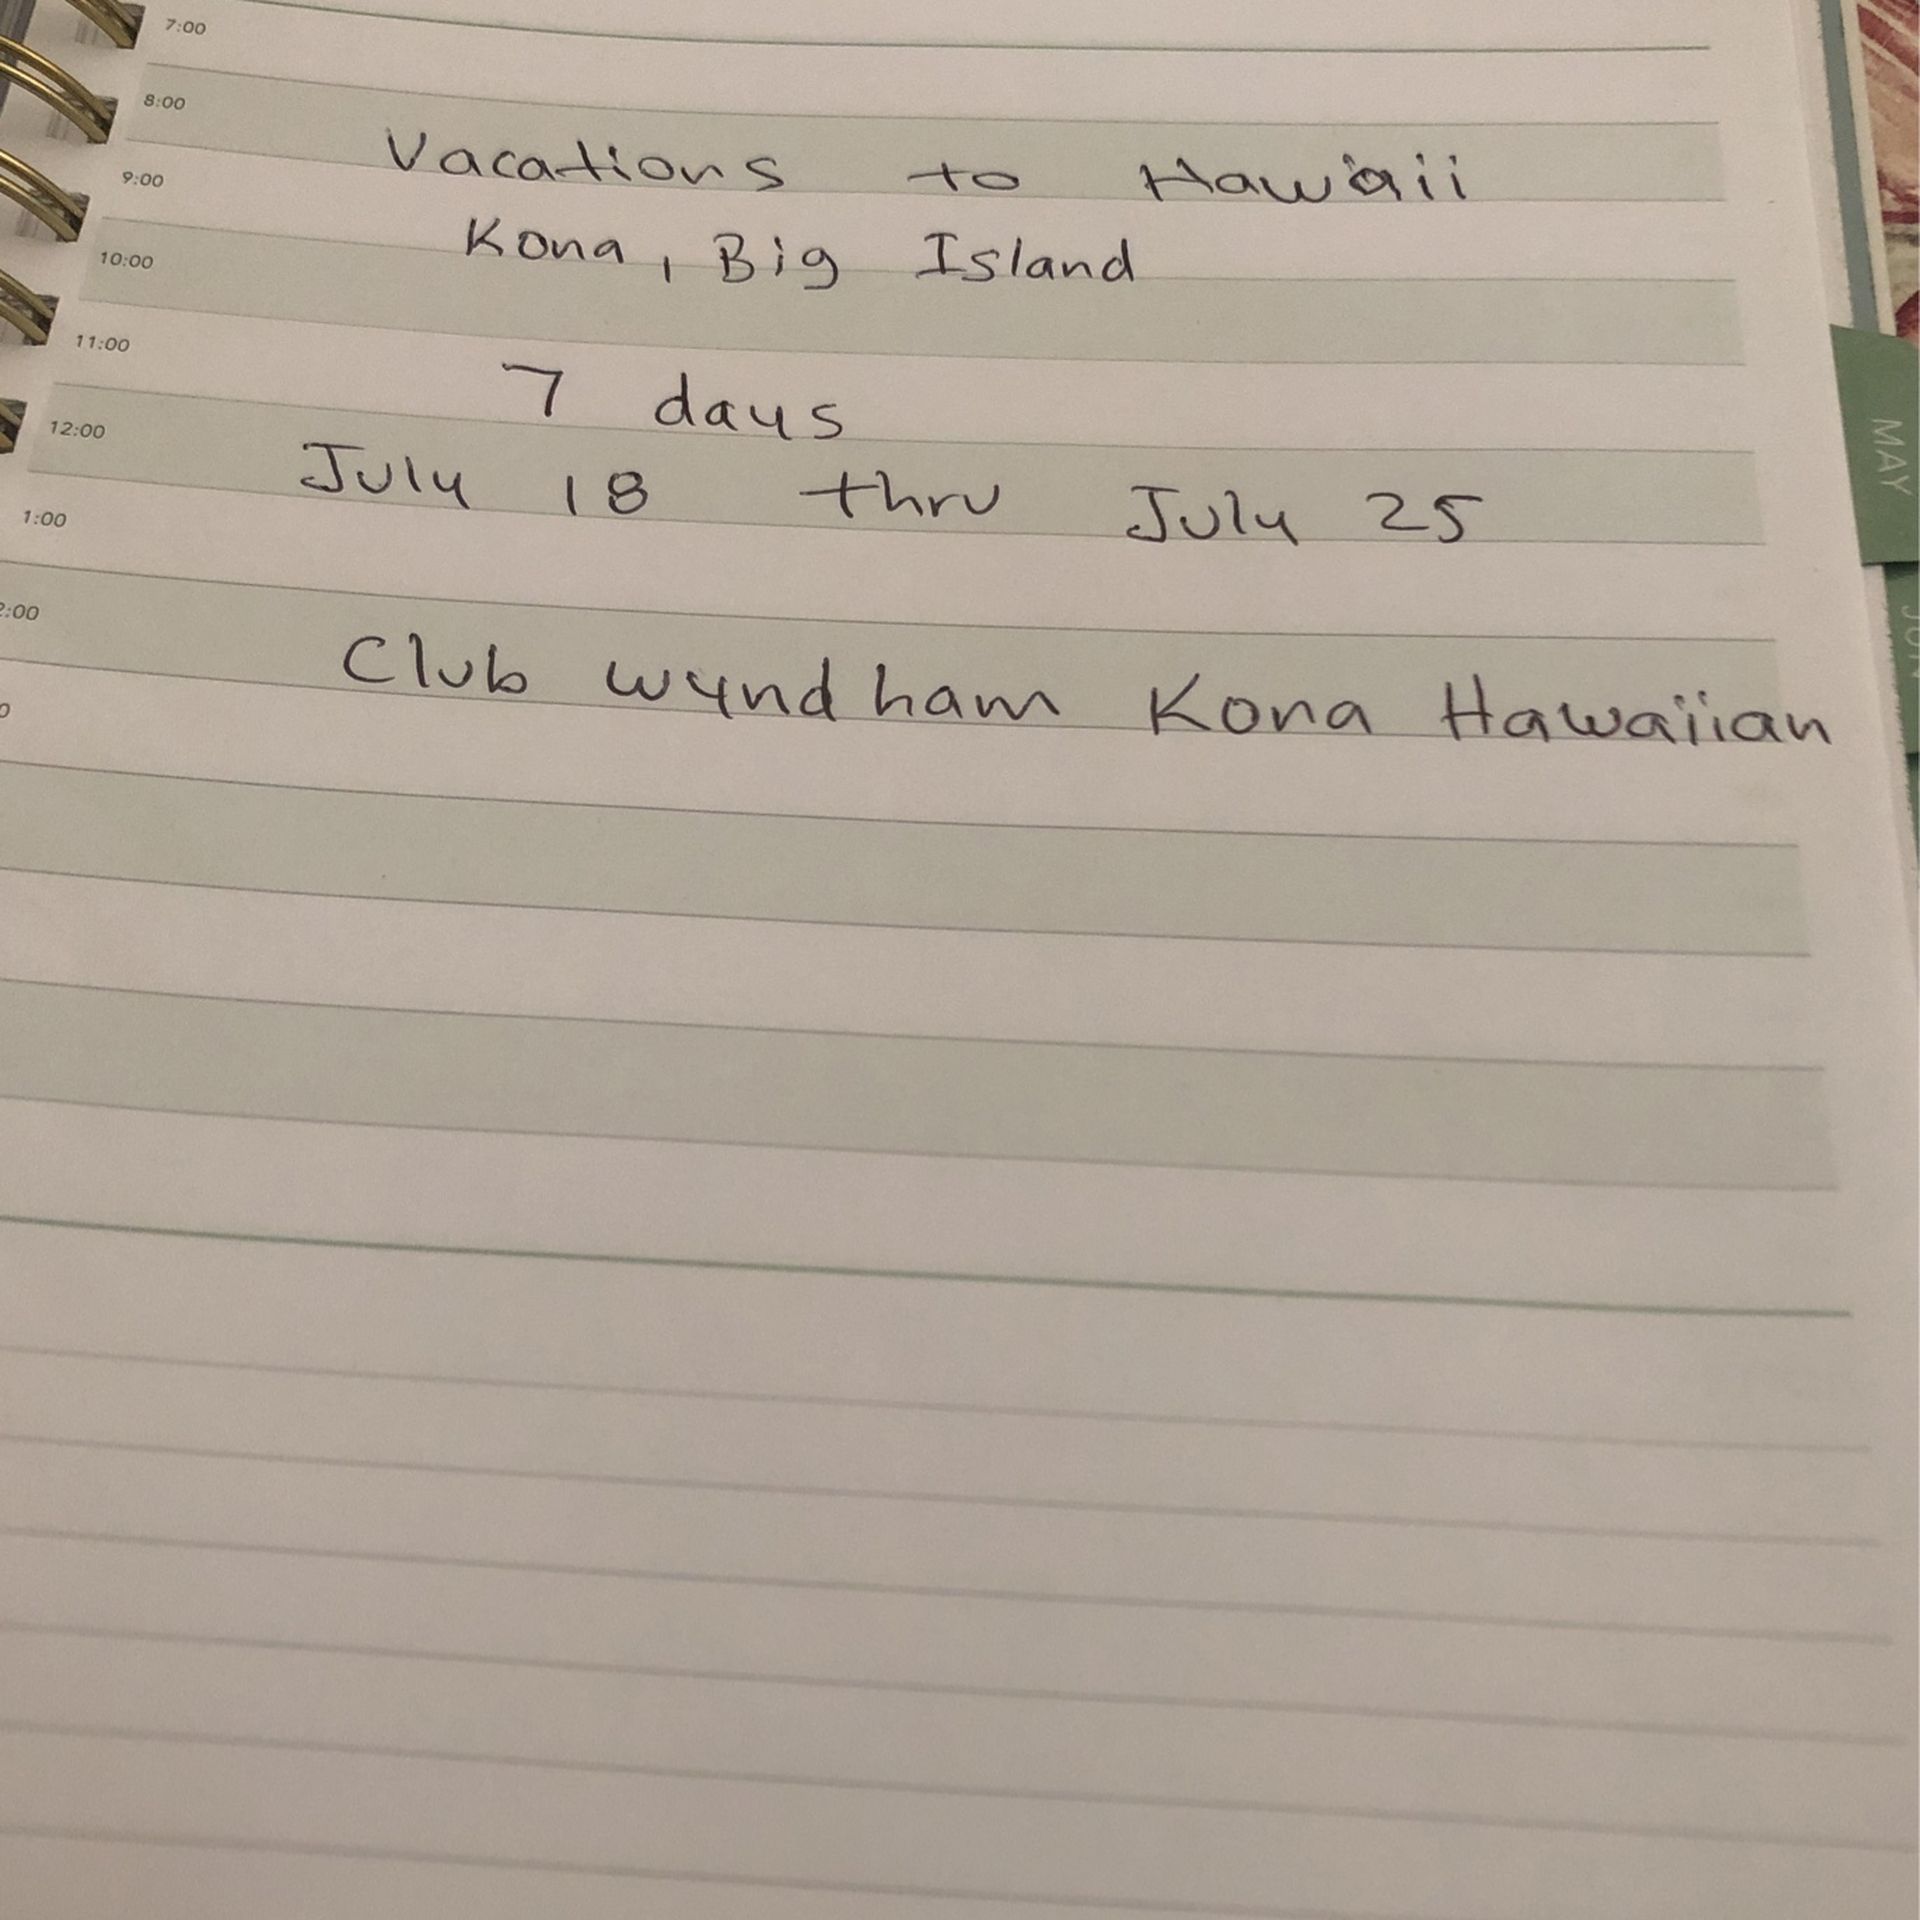 7:00
8:00
Vacations to Hawaii
9:00
Kona, Big Island
10:00
11:00
7 days
12:00
July 18 thru July 25
1:00
2:00
Club Wyndham Kona Hawaiian
MAY